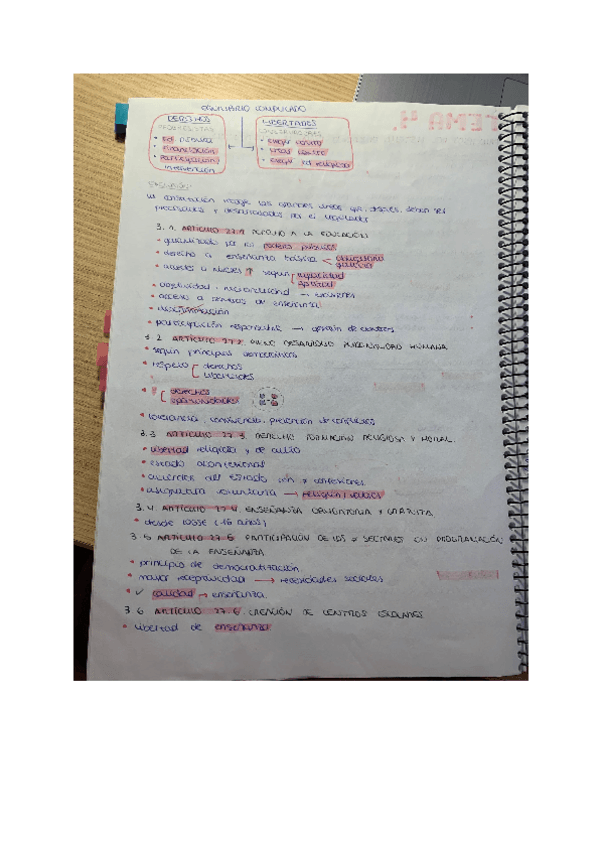 EQUILIBRIO COMPLICADO
DERECHOS
PROGRESISTAS
• Ed. pública
• Financiación
• Participación/
intervención
LIBERTADES
CONSERVADORES
• elegir centro
• crear centro
• elegir ed religiosa
TEMA 4.
La constitución recoge las grandes líneas que, después, deben ser
precisadas y desarrolladas por el legislador
3. 1. ARTÍCULO 27.1 DERECHO A LA EDUCACIÓN
• garantizado por los poderes públicos
• derecho a enseñanza básica < obligatoria
gratuita
• acceso a niveles ↑ según [ capacidad
aptitud
• objetividad y racionalidad → exámenes
• acceso a servicios de enseñanza
• discriminación
• participación responsable → gestión de centros
3.2 ARTÍCULO 27.2 PLENO DESARROLLO PERSONALIDAD HUMANA
• según principios democráticos
• respeto [ derechos
libertades
• [ derechos
oportunidades
• tolerancia, convivencia, prevención de conflictos
3.3 ARTÍCULO 27.3 DERECHO FORMACIÓN RELIGIOSA Y MORAL.
• libertad religiosa y de culto
• estado aconfesional
• acuerdos del estado con ≠ confesiones
• asignatura voluntaria → religión/valores
3.4. ARTÍCULO 27.4 ENSEÑANZA OBLIGATORIA Y GRATUITA.
• desde LOGSE (-16 años)
3.5 ARTÍCULO 27.5 PARTICIPACIÓN DE LOS ≠ SECTORES EN PROGRAMACIÓN
DE LA ENSEÑANZA
• principio de democratización.
• mayor receptividad → necesidades sociales
• ✓ calidad → enseñanza.
3.6 ARTÍCULO 27.6 CREACIÓN DE CENTROS ESCOLARES
• libertad de enseñanza